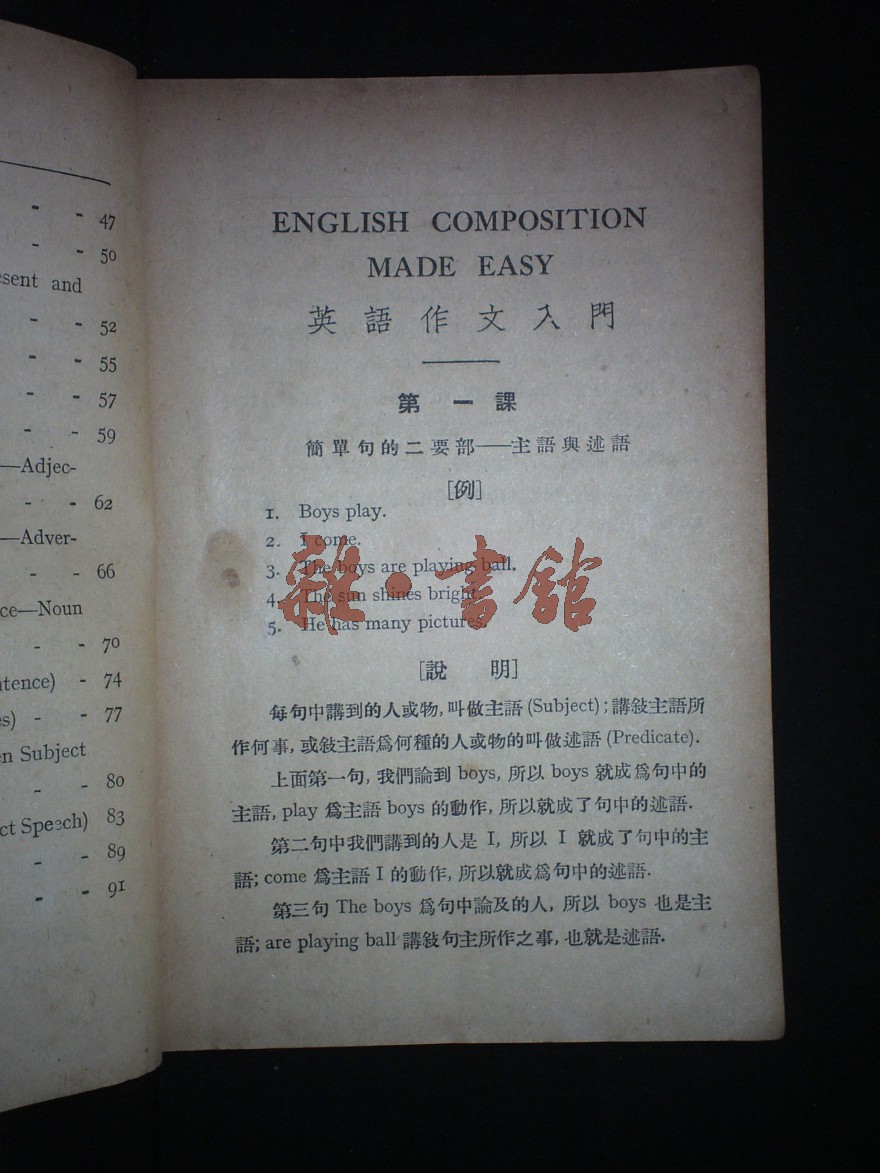 47
50
esent and
52
55
57
59
—Adjec-
62
—Adver-
66
ce—Noun
70
tence) - 74
es) - - 77
en Subject
80
ct Speech) 83
89
91
ENGLISH COMPOSITION
MADE EASY
英語作文入門
第一課
簡單句的二要部——主語與述語
[例]
1. Boys play.
2. I come.
3. The boys are playing ball.
4. The sun shines bright.
5. He has many pictures.
雜·書館
[說 明]
每句中講到的人或物,叫做主語 (Subject); 講敍主語所
作何事, 或敍主語爲何種的人或物的叫做述語 (Predicate).
上面第一句, 我們論到 boys, 所以 boys 就成爲句中的
主語, play 爲主語 boys 的動作, 所以就成了句中的述語.
第二句中我們講到的人是 I, 所以 I 就成了句中的主
語; come 爲主語 I 的動作, 所以就成爲句中的述語.
第三句 The boys 爲句中論及的人, 所以 boys 也是主
語; are playing ball 講敍句主所作之事, 也就是述語.